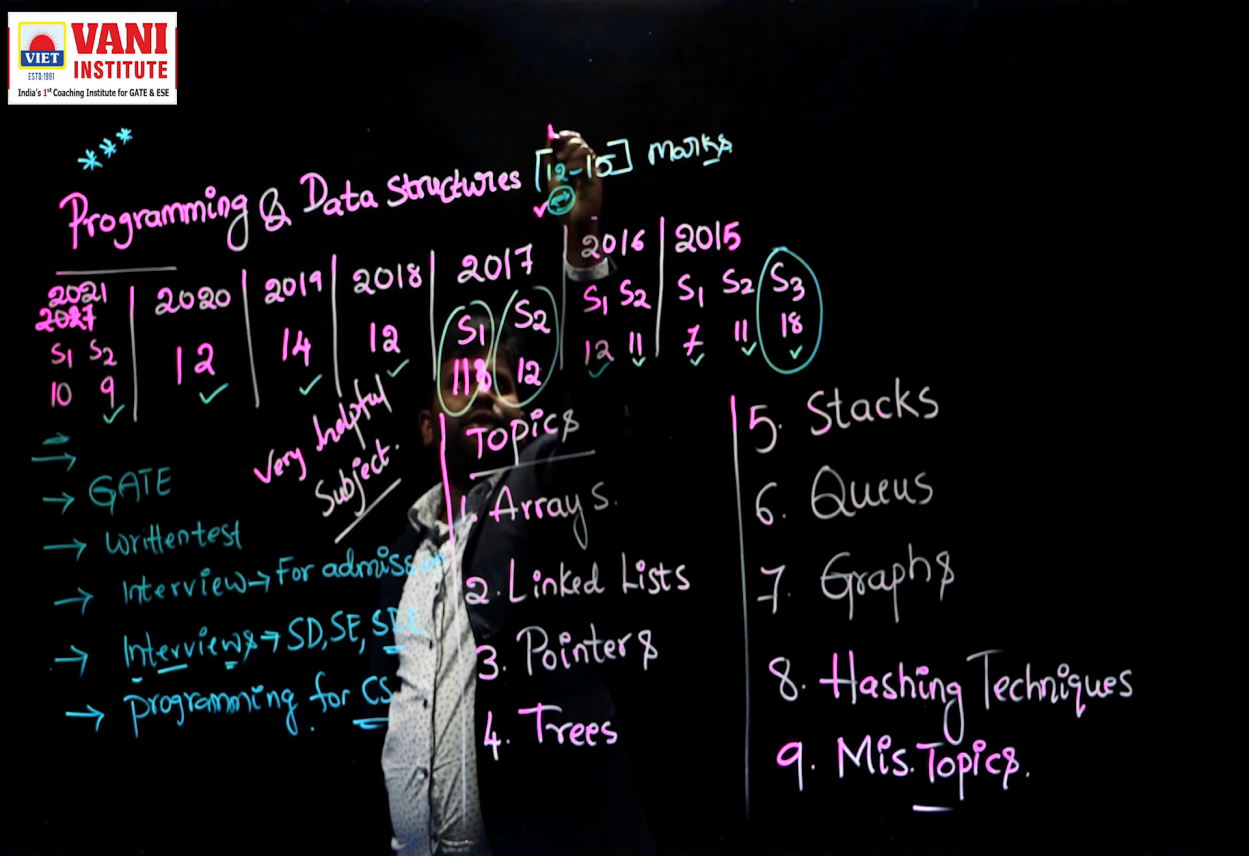 VIET
ESTD:1991
VANI
INSTITUTE
India's 1st Coaching Institute for GATE & ESE
***
Programming & Data Structures [12-15] Marks
2021
S1 S2
10 9
2020
12
2019
14
2018
12
2017
S1 S2
12
2016
S1 S2
12 11
2015
S1 S2 S3
7 11 18
Very helpful
Subject.
→ GATE
→ Written test
→ Interview → For admission
→ Interviews → SD, SE, SDE
→ programming for CS
Topics
1. Arrays.
2. Linked Lists
3. Pointers
4. Trees
5. Stacks
6. Queus
7. Graphs
8. Hashing Techniques
9. Mis. Topics.